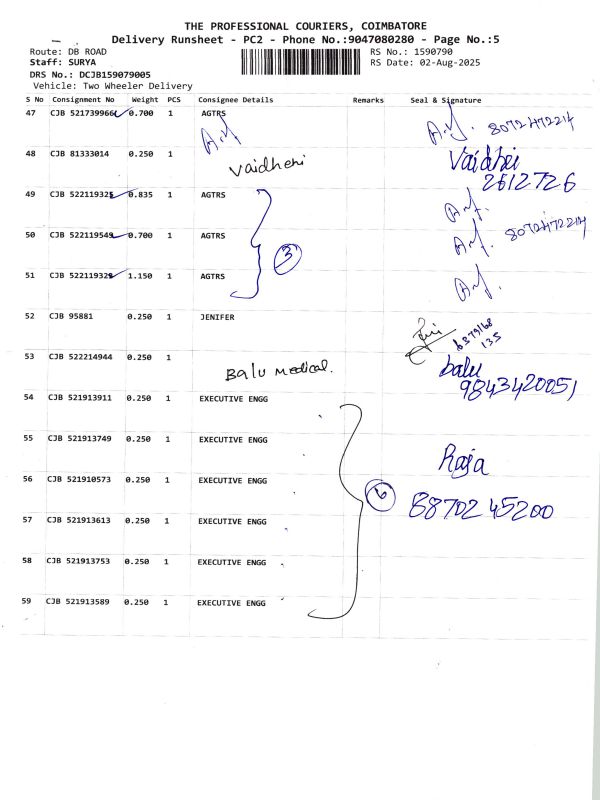 THE PROFESSIONAL COURIERS, COIMBATORE
Delivery Runsheet - PC2 - Phone No.:9047080280 - Page No.:5
Route: DB ROAD RS No.: 1590790
Staff: SURYA RS Date: 02-Aug-2025
DRS No.: DCJB159079005
Vehicle: Two Wheeler Delivery
S No Consignment No Weight PCS Consignee Details Remarks Seal & Signature
47 CJB 521739966 0.700 1 AGTRS 8072472214
48 CJB 81333014 0.250 1 Vaidhehi Vaidhei
2612726
49 CJB 522119325 0.835 1 AGTRS
50 CJB 522119549 0.700 1 AGTRS 8072472214
3
51 CJB 522119328 1.150 1 AGTRS
52 CJB 95881 0.250 1 JENIFER 6379168
135
53 CJB 522214944 0.250 1 Balu Medical. balu
9843420051
54 CJB 521913911 0.250 1 EXECUTIVE ENGG
55 CJB 521913749 0.250 1 EXECUTIVE ENGG Raja
56 CJB 521910573 0.250 1 EXECUTIVE ENGG 6 8870245200
57 CJB 521913613 0.250 1 EXECUTIVE ENGG
58 CJB 521913753 0.250 1 EXECUTIVE ENGG
59 CJB 521913589 0.250 1 EXECUTIVE ENGG